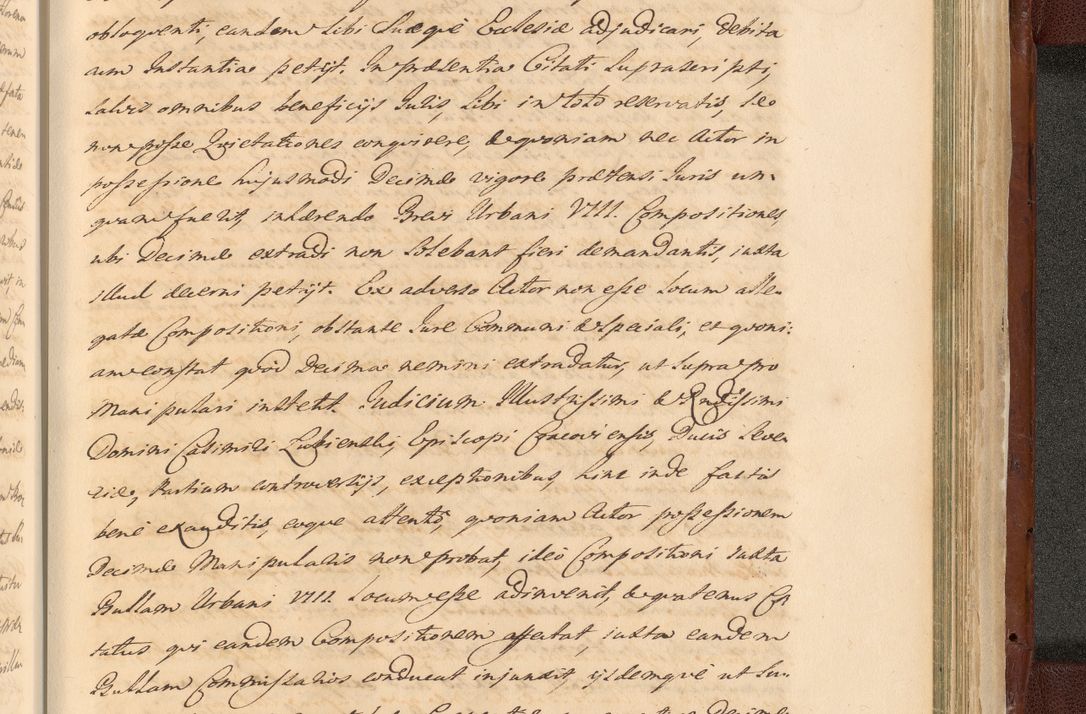 obloquenti, eandem sibi Suæquè Ecclesiæ adjudicari, debita
cum Instantia petijt. In præsentia Citati suprascripti,
salvis omnibus beneficijs Iuris, sibi in toto reservatis, se
non posse Quietationes conquirere, & quoniam nec Actor in
possessione hujusmodi Decimæ vigore prætensi Iuris un-
quam fuerit, inhærendo Brevi Urbani VIII. Compositiones,
ubi Decimæ extradi non solebant fieri demandantis, iuxta
illud decerni petijt. Ex adverso Actor non esse Locum alle-
gatæ Compositioni, obstante Iure Communi & speciali, et quoni-
am constat quòd Decima nemini extradatur, ut supra pro
Manipulari institit. Iudicium Illustrissimi & Rndissimi
Domini Casimiri Łubienski, Episcopi Cracoviensis, Ducis Seve-
riæ, Partium controversijs, exceptionibus, hinc inde factis
benè exauditis, eoque attentô, quoniam Actor possessionem
Decimæ Manipularis non probat, ideò Compositioni iuxta
Bullam Urbani VIII. Locum esse adinvenit, & quatenus Ci-
tatus qui eandem Compositionem affectat, iuxta eandem
Bullam Commissarios conducat injunxit, ijsdemquè ut Su-
Decimæ